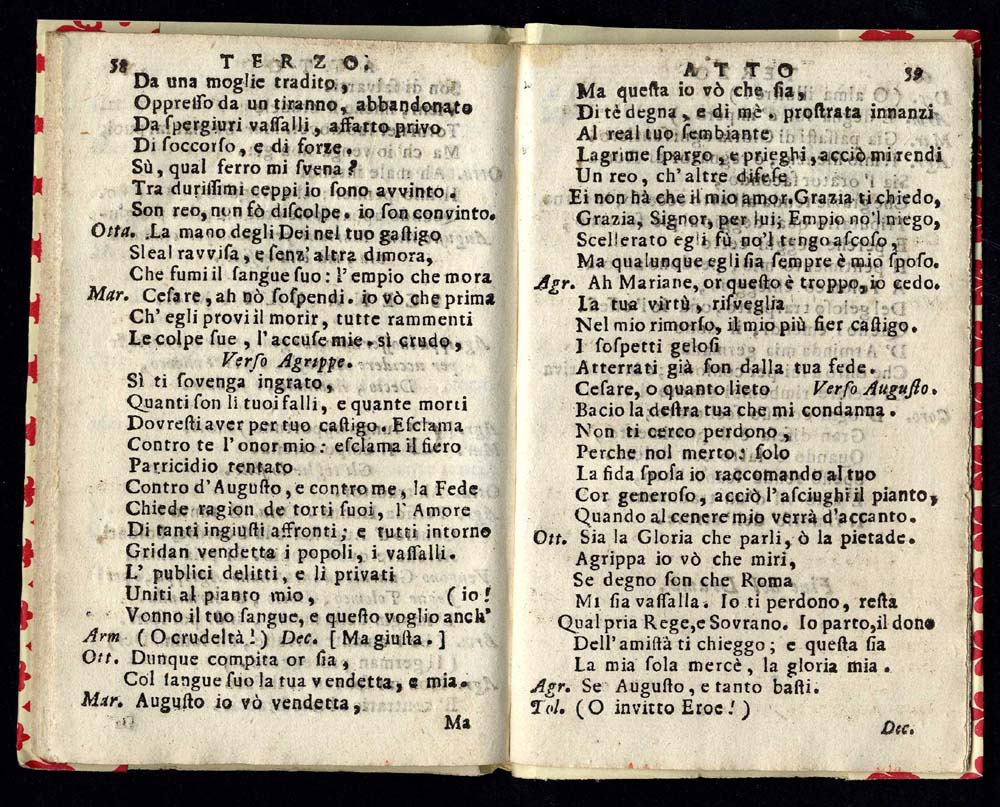 58 TERZO.
Da una moglie tradito,
Oppreſſo da un tiranno, abbandonato
Da ſpergiuri vaſſalli, affatto privo
Di ſoccorſo, e di forze.
Sù, qual ferro mi ſvena?
Tra duriſſimi ceppi io ſono avvinto.
Son reo, non fò diſcolpe. io ſon convinto.
Otta. La mano degli Dei nel tuo gaſtigo
Sleal ravviſa, e ſenz' altra dimora,
Che fumi il ſangue ſuo: l'empio che mora
Mar. Ceſare, ah nò ſoſpendi. io vò che prima
Ch' egli provi il morir, tutte rammenti
Le colpe ſue, l'accuſe mie. sì crudo,
Verſo Agrippe.
Sì ti ſovenga ingrato,
Quanti ſon li tuoi falli, e quante morti
Dovreſti aver per tuo caſtigo. Eſclama
Contro te l'onor mio: eſclama il fiero
Parricidio tentato
Contro d'Auguſto, e contro me, la Fede
Chiede ragion de torti ſuoi, l' Amore
Di tanti ingiuſti affronti; e tutti intorno
Gridan vendetta i popoli, i vaſſalli.
L' publici delitti, e li privati
Uniti al pianto mio, (io!
Vonno il tuo ſangue, e queſto voglio anch'
Arm (O crudeltà!) Dec. [Ma giuſta.]
Ott. Dunque compita or ſia,
Col ſangue ſuo la tua vendetta, e mia.
Mar. Auguſto io vò vendetta,
Ma
ATTO 59
Ma queſta io vò che ſia,
Di tè degna, e di mè. proſtrata innanzi
Al real tuo ſembiante
Lagrime ſpargo, e prieghi, acciò mi rendi
Un reo, ch' altre difeſe
Ei non hà che il mio amor. Grazia ti chiedo,
Grazia, Signor, per lui; Empio no'l niego,
Scellerato egli fù no'l tengo aſcoſo,
Ma qualunque egli ſia ſempre è mio ſpoſo.
Agr. Ah Mariane, or queſto è troppo, io cedo.
La tua virtù, riſveglia
Nel mio rimorſo, il mio più fier caſtigo.
I ſoſpetti geloſi
Atterrati già ſon dalla tua fede.
Ceſare, o quanto lieto Verſo Auguſto.
Bacio la deſtra tua che mi condanna.
Non ti cerco perdono,
Perche nol merto: ſolo
La fida ſpoſa io raccomando al tuo
Cor generoſo, acciò l'aſciughi il pianto,
Quando al cenere mio verrà d'accanto.
Ott. Sia la Gloria che parli, ò la pietade.
Agrippa io vò che miri,
Se degno ſon che Roma
Mi ſia vaſſalla. Io ti perdono, reſta
Qual pria Rege, e Sovrano. Io parto, il dono
Dell'amiſtà ti chieggo; e queſta ſia
La mia ſola mercè, la gloria mia.
Agr. Se Auguſto, e tanto baſti.
Tol. (O invitto Eroe!)
Dec.